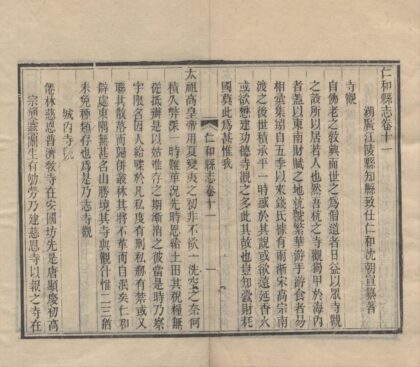 仁和縣志卷十一
湖廣江陵縣知縣致仕仁和沈朝宣纂著
寺觀
自佛老之教興而世之爲僧道者日益以眾寺觀
之設所以居若人也然吾杭之寺觀獨甲於海内
者蓋以東南財賦之地就號繁華游手游食者易
相雲集别自五季以來錢氏據有兩浙宋高宗南
渡之後世積承平一時或於其說或欲遠延香火
或欲懋建功德寺觀之多此其故也豈知蠹財耗
國莫此爲甚惟我
太祖高皇帝用夏變夷之初非不欲一洗空之奈何
積久弊深一時難革况先時恩給土田其税糧無
從抵辦是以姑惟存之期漸消之彼當是時乃察
宇限名因人給牒於凡私度有刑私剏有禁或又
聯其散落而歸併叢林其將不革而自涣矣仁和
僻處東隅無甚名山勝境其寺與觀什惟二三猶
未免種類存也爲是乃志寺觀
城内寺院
傳林慈恩普濟教寺在安國坊先是唐顯慶初高
宗通靈關生有劬勞乃建慈恩寺以報之寺在
仁和縣志卷十一
一